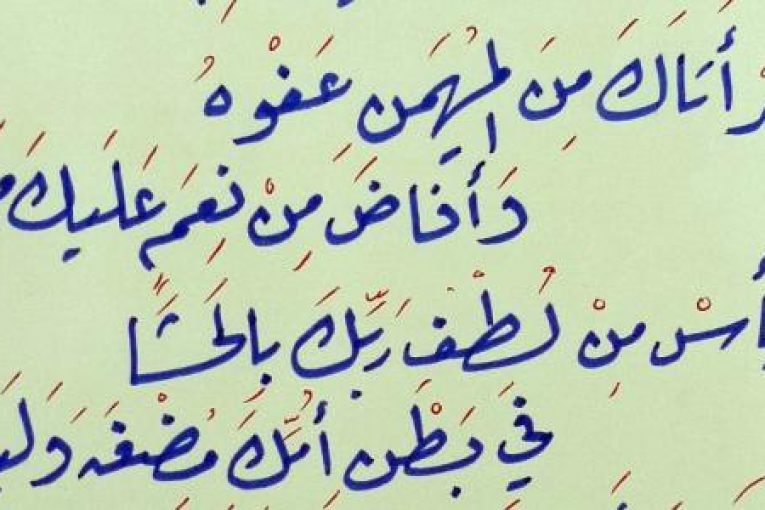 أَتَاكَ مِنَ المُهَيمِنِ عَفْوهُ
وَأَفَاضَ مِنْ نِعَمٍ عَلَيكَ
مِنْ لُطْفِ رَبِّكَ بالحَشَا
في بَطْنِ أُمِّكَ مُضْغَةً وَ